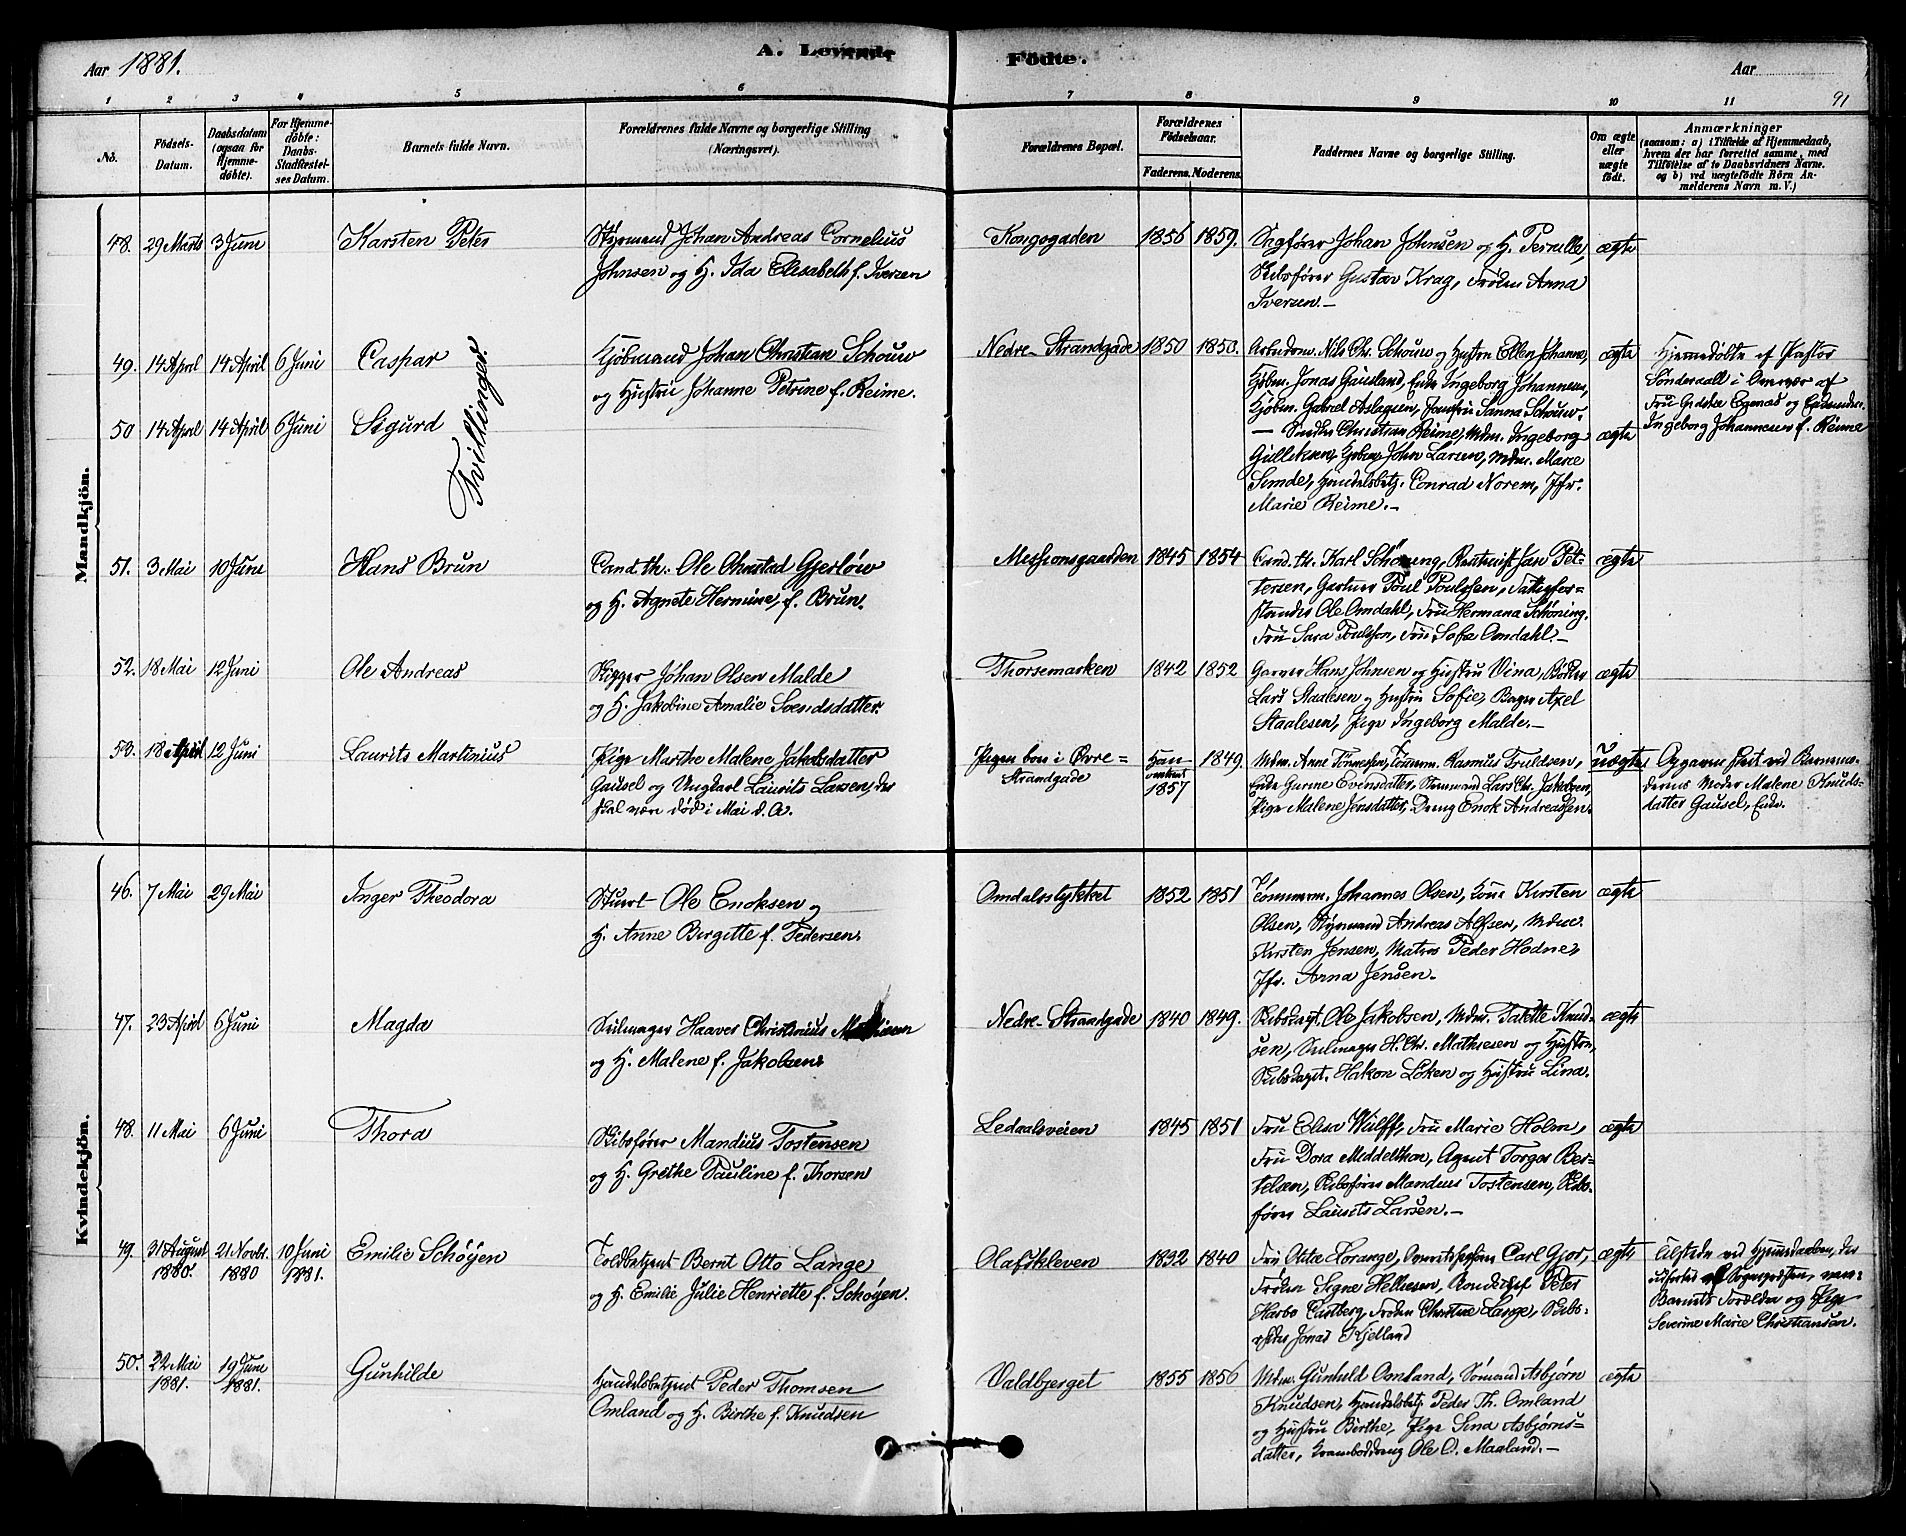 Aar 1881.
A. Levende
Födte.
Aar
91
1 2 3 4 5 6 7 8 9 10 11
No.
Födsels-Datum.
Daabsdatum (ogsaa for Hjemmedöbte).
For Hjemmedöbte: Daabs-Stadfæstelses Datum.
Barnets fulde Navn.
Forældrenes fulde Navne og borgerlige Stilling (Næringsvei).
Forældrenes Bopæl.
Forældrenes Födselsaar.
Faderens. Moderens.
Faddernes Navne og borgerlige Stilling.
Om ægte eller uægte födt.
Anmærkninger
(saasom: a) i Tilfælde af Hjemmedaab, hvem der har forrettet samme, med Tilföielse af to Daabsvidners Navne. og b) ved uægtefödte Börn Anmelderens Navn m. V.)
Mandkjön.
48. 29 Marts 3 Juni Karsten Peter
Styrmand Johan Andreas Cornelius
Johnsen og H. Ida Elisabeth f. Iversen
Kongsgaden 1856 1859.
Sagfører Johan Johnsen og H. Pernille,
Skibsfører Gustav Krag, Frøken Anna
Iversen.—
ægte
49. 14 April 14 April 6 Juni Caspar
Tvillinger
Kjøbmand Johan Christian Schouw
og Hustru Johanne Petrine f. Reime.
Nedre-Strandgade 1850 1850.
Arbeidsm. Nils Chr. Schouw og Hustru Ellen Johanne,
Kjøbm. Jonas Gausland, Enke Ingeborg Johannesen,
Kjøbm. Gabriel Aslagsen, Jomfru Sanna Schouw.
ægte
Hjemmedøbte af Pastor
Sönderaall i Nærvær af
Fru Gidske Egenæs og Enkemadm.
Ingeborg Johannesen f. Reime
50 14 April 14 April 6 Juni Sigurd
— Snedker Christian Reime, Mdm. Ingeborg
Gulleksen, Kjøbm. John Larsen, Mdm. Marie
Simde, Handelsbetj. Conrad Norem, Jfr.
Marie Reime.—
ægte
51. 3 Mai 10 Juni Hans Brun
Cand th. Ole Christad Gjerløw
og H. Agnete Hermine, f. Brun.
Missionsgaarden 1845 1854
Cand. th. Karl Schöning, Rentenist Jan Pet-
tersen, Gartner Poul Poulssen, Fattigfor-
standes Ole Omdahl, Fru Hermana Schöning,
Fru Sara Poulsson, Fru Sofie Omdahl.—
ægte
52. 18 Mai 12 Juni Ole Andreas
Rigger Johan Olsen Malde
og H. Jakobine Amalie Svendsdatter.
Thorsemarken 1842 1852
Garver Hans Johnsen og Hustru Vina, Bödker
Lars Staalesen og Hustru Sofie, Bager Axel
Staalesen, Pige Ingeborg Malde.—
ægte
53. 18 April 12 Juni Laurits Martinius
Pige Marthe Malene Jakobsdatter
Gausel og Ungkarl Laurits Larsen, der
skal være död i Mai d. A.
Pigen bor i Övre-
Strandgade
Han omtrent 1857 1849.
Mdm. Anne Tönnessen, Tömmerm. Rasmus Truldsen,
Enke Gurine Evensdatter, Stenmand Lars Chr. Jakobsen,
Pige Malene Jensdatter, Dreng Enok Andreassen.
uægte
Opgaven sket ved Barnemo-
derens Moder Malene Knuds-
datter Gausel, Enke.
Kvindekjön.
46. 7 Mai 29 Mai Inger Theodora
Stuert Ole Enoksen og
H. Anne Birgitte f. Pedersen.
Omdalsstykket 1852 1851
Tömmerm. Johannes Olsen, Kone Kirsten
Olsen, Styrmand Andreas Alfsen, Mdm.
Kirsten Jensen, Matros Peder Hodne,
Jfr. Arna Jensen.
ægte
47. 23 April 6 Juni Magda
Seilmager Haaver Christinius Mathiesen
og H. Malene f. Jakobsen.
Nedre-Strandgade 1840 1849.
Skibscapt. Ole Jakobsen, Mdm. Talette Knud-
sen, Seilmager H. Chr. Mathiesen og Hustru,
Skibscapt. Hakon Löken og Hustru Lina.
ægte
48. 11 Mai 6 Juni Thora
Skibsfører Mandius Tostensen
og H. Grethe Pauline f. Thorsen
Ledaalsveien 1845 1851
Fru Elise Wulff, Fru Marie Holm,
Fru Dora Middelthon, Agent Torger Ber-
telsen, Skibsfører Mandius Tostensen, Skibs-
fører Laurits Larsen.—
ægte
49. 31 August 1880. 21 Novbr. 1880 10 Juni 1881. Emilie Schøyen
Toldbetjent Bernt Otto Lange
og H. Emilie Julie Henriette f. Schøyen.
Olafskleven 1832 1840
Fru Otta Lorange, Carl Gjör,
Frøken Signe Hellesen, Peter
Harbo Castberg, Frøken Christine Lange, Skibs-
reder Jonas Kjelland
ægte
Tilstede ved Hjemmedaaben, der
udførtes af Sogneprästen, var:
Barnets Forældre og Pige
Severine Marie Christiansen.
50. 22 Mai 1881. 19 Juni 1881. Gunhilde
Handelsbetjent Peder Thomsen
Omland og H. Birthe f. Knudsen
Valdbjerget 1855 1856
Mdm. Gunhild Omland, Sömand Asbjørn
Knudsen, Handelsbetj. Peder Th. Omland
og Hustru Birthe, Pige Sina Asbjørns-
datter, Kramboddreng Ole O. Maaland.—
ægte